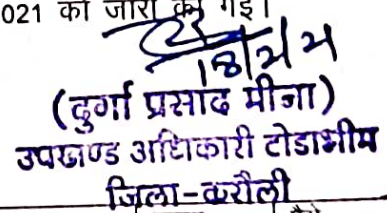 021 को जारी की गई।
18/2/21
(दुर्गा प्रसाद मीना)
उपखण्ड अधिकारी टोडाभीम
जिला-करौली